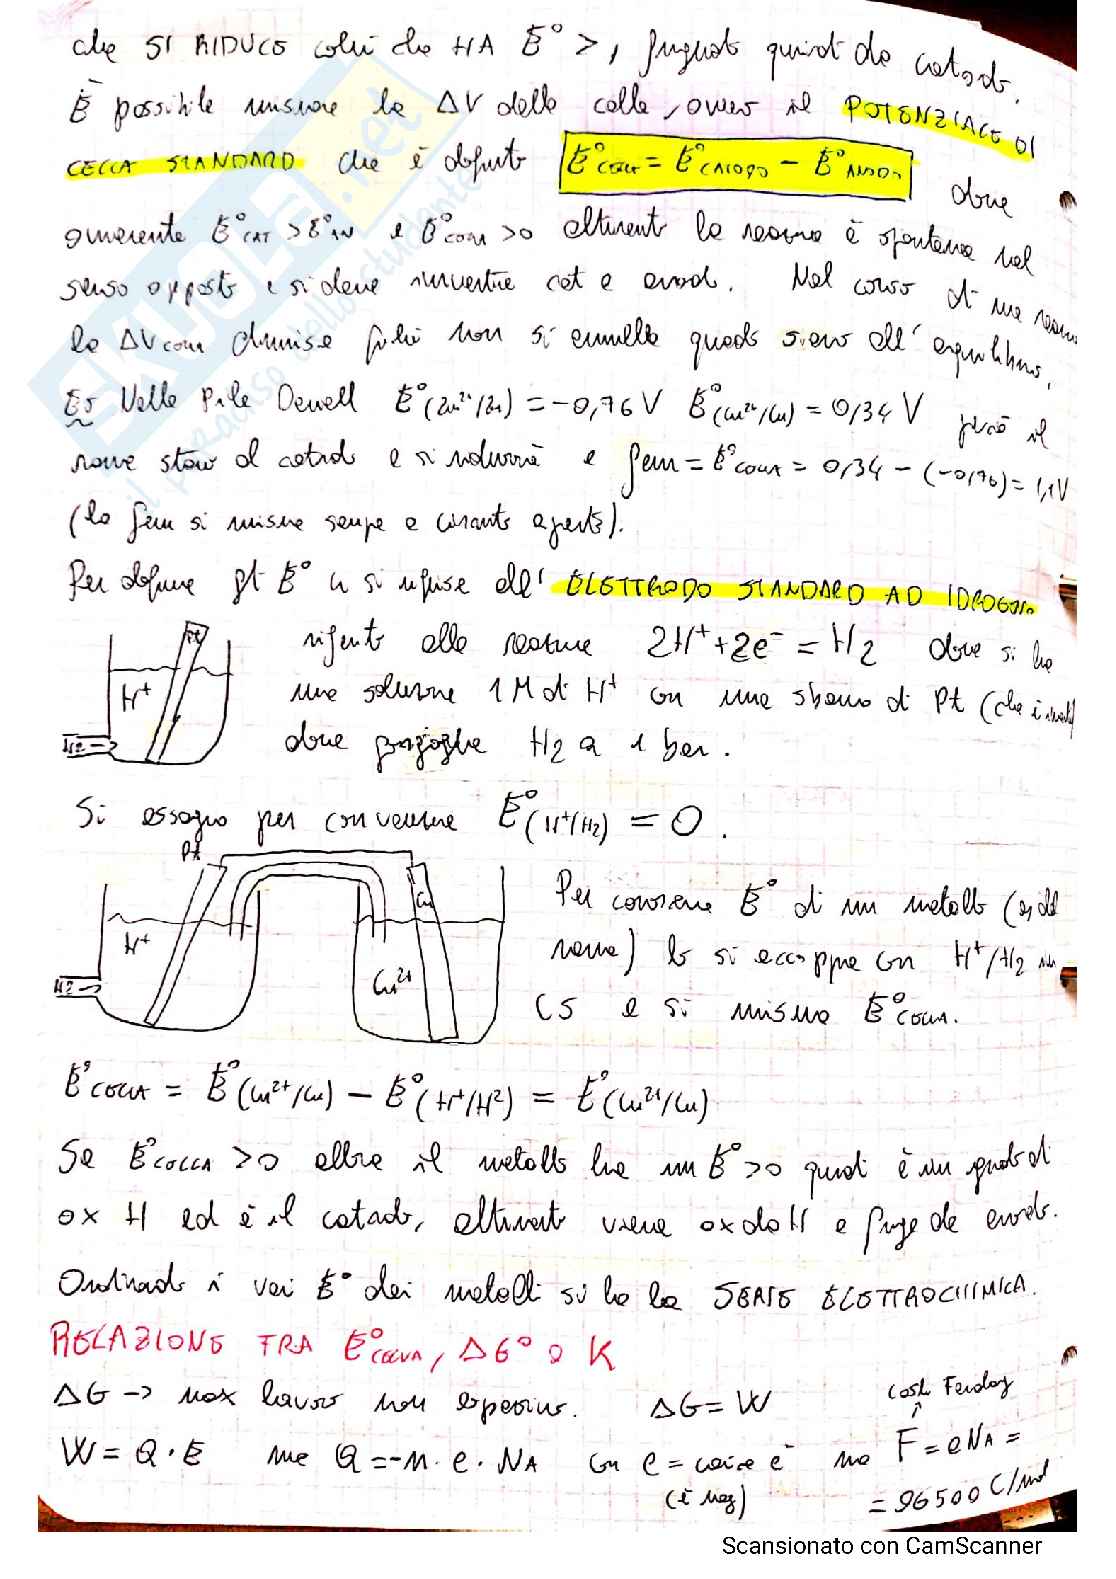 che SI RIDUCE colui che HA E° >, fungendo quindi da catodo.
È possibile misurare la ΔV della cella, ovvero il POTENZIALE DI
CELLA STANDARD che è definito E°CELLA = E°CATODO - E°ANODO, dove
ovviamente E°CAT > E°AN e E°CELLA >0 altrimenti la reazione è spontanea nel
senso opposto e si deve invertire cat e anod. Nel corso di una reazione
la ΔVCELLA diminuisce finché non si annulla quando siamo all'equilibrio.
Es Nella Pila Daniell E°(Zn²⁺/Zn) = -0,76 V E°(Cu²⁺/Cu) = 0,34 V perciò il
rame starà al catodo e si ridurrà e fem = E°CELLA = 0,34 - (-0,76) = 1,1V
(la fem si misura sempre a circuito aperto).
Per definire gli E° ci si riferisce all'ELETTRODO STANDARD AD IDROGENO
riferito alla reazione 2H⁺ + 2e⁻ = H2 dove si ha
una soluzione 1 M di H⁺ con una sbarra di Pt (che è inerte)
dove gorgoglia H2 a 1 bar.
Pt
H⁺
H2 →
Si assegna per convenzione E°(H⁺/H2) = 0.
Pt
Cu
H⁺
H2 →
Cu²⁺
Per conoscere E° di un metallo (es del
rame) lo si accoppia con H⁺/H2 in
CS e si misura E°CELLA.
E°CELLA = E°(Cu²⁺/Cu) - E°(H⁺/H²) = E°(Cu²⁺/Cu)
Se E°CELLA >0 allora il metallo ha un E° >0 quindi è in grado di
ox H ed è il catodo, altrimenti viene ox da H e funge da anodo.
Ordinando i vari E° dei metalli si ha la SERIE ELETTROCHIMICA.
RELAZIONE FRA E°CELLA, ΔG° e K
ΔG → max lavoro non espansivo. ΔG = W
cost. Faraday
W = Q · E ma Q = -n · e · NA con e = carica e⁻ ma F = e NA =
(è neg)
= 96500 C/mol
SKUOLA.net
il paradiso dello studente
Scansionato con CamScanner